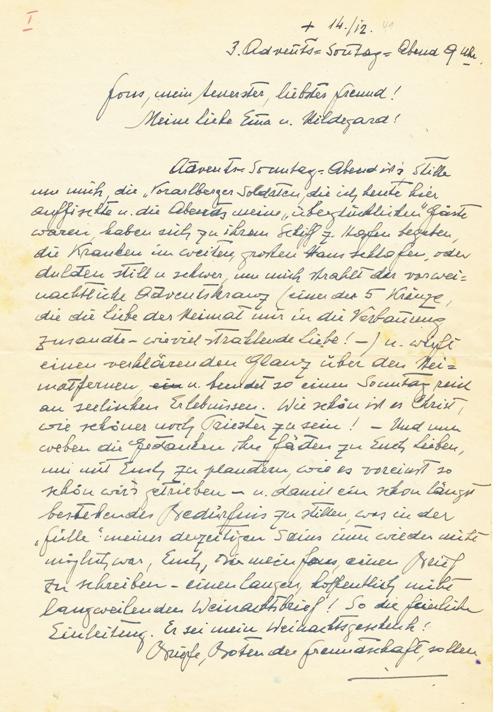 I
+ 14./12. 41
3. Advents=Sontag=Abend 9 Uhr.
Jons, mein teuerster, liebster Freund!
Meine liebe Erna u. Hildegard!
Advents=Sonntag=Abend ist's. Stille
um mich, die „Vorarlberger Soldaten, die ich heute hier
auffischte u. die Abends meine „überglücklichen" Gäste
waren, haben sich zu ihrem Schiff z. Hafen begeben,
die Kranken im weiten, großen Haus schlafen, oder
dulden still u. schwer, um mich strahlt der vorwei=
nachtliche Adventskranz (einer der 5 Kränze,
die die Liebe der Heimat mir in die Verbannung
zusandte – wieviel strahlende Liebe! –) u. wirft
einen verklärenden Glanz über den Hei=
matfernen u. sendet so einen Sonntag reich
an seelischen Erlebnissen. Wie schön ist es Christ,
wie schöner noch Priester zu sein! – Und nun
weben die Gedanken ihre Fäden zu Euch Lieben,
um mit Euch zu plaudern, wie es voreinst so
schön wir's getrieben – u. damit ein schon längst
bestehendes Bedürfnis zu stillen, was in der
„Fülle" meines derzeitigen Seins nun wieder nicht
möglich war, Euch, mein Jons, einen Brief
zu schreiben – einen langen, hoffentlich nicht
langweilenden Weinachtsbrief! So die feierliche
Einleitung. Er sei mein Weinachtsgeschenk!
Briefe, Boten der Freundschaft, sollen